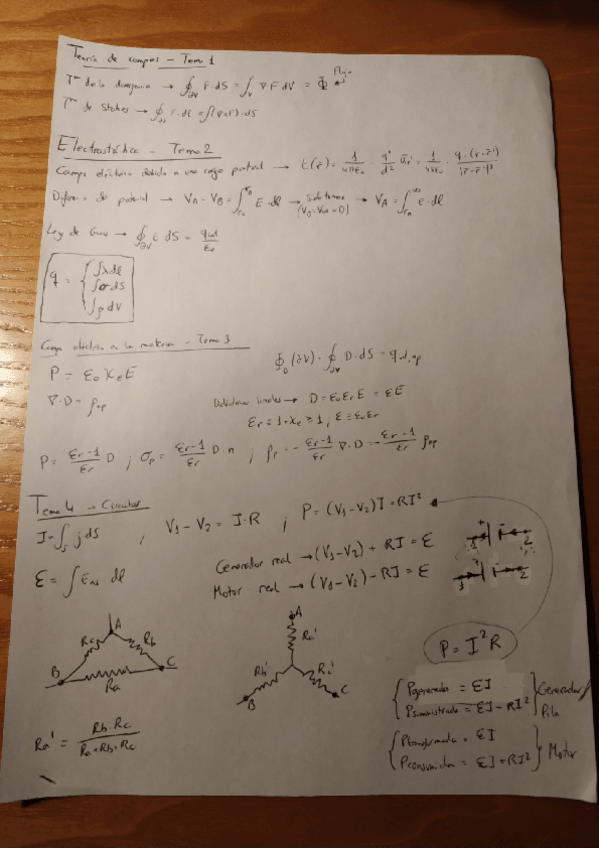 Teoría de campos - Tema 1
Tma de la divergencia → ∮∂V F·dS = ∫V ∇F dV = Φ ↙ Flujo
Tma de Stokes → ∮ F·dl = ∫(∇×F)·dS
Electrostática - Tema 2
Campo eléctrico debido a una carga puntual → E(r̄) = 1/4πε₀ · q'/d² ūr' = 1/4πε₀ · q·(r̄-r̄')/|r̄-r̄'|³
Diferencia de potencial → VA - VB = ∫rA^rB E·dl → Si obtenemos (VB = V∞ = 0) → VA = ∫rA^∞ E·dl
Ley de Gauss → ∮∂V E dS = qint/ε₀
q = { ∫λdl
∫σdS
∫ρdV
Campo eléctrico en la materia - Tema 3
P = ε₀ χe E
ΦD (∂V) = ∮∂V D·dS = q
∇·D = ρnp
lineales → D = ε₀εrE = εE
εr = 1+χe ≥ 1 ; ε = ε₀εr
P = εr-1/εr D ; σp = εr-1/εr D·n ; ρp = - εr-1/εr ∇·D = - εr-1/εr ρnp
Tema 4 → Circuitos
I = ∫S j dS , V1 - V2 = I·R ; P = (V1-V2)I = RI²
Generador real → (V1-V2) + RI = ε
+ 1 2
ε = ∫ Eas dl
Motor real → (V1-V2) - RI = ε
1 + 2
A
Rc Rb
B Ra C
A
Ra'
Rb' Rc'
B C
P = I²R
Pgenerada = εI
Psuministrada = εI - RI²
Generador/
Pila
Ptransformada = εI
Pconsumida = εI + RI²
Motor
Ra' = Rb·Rc / Ra+Rb+Rc